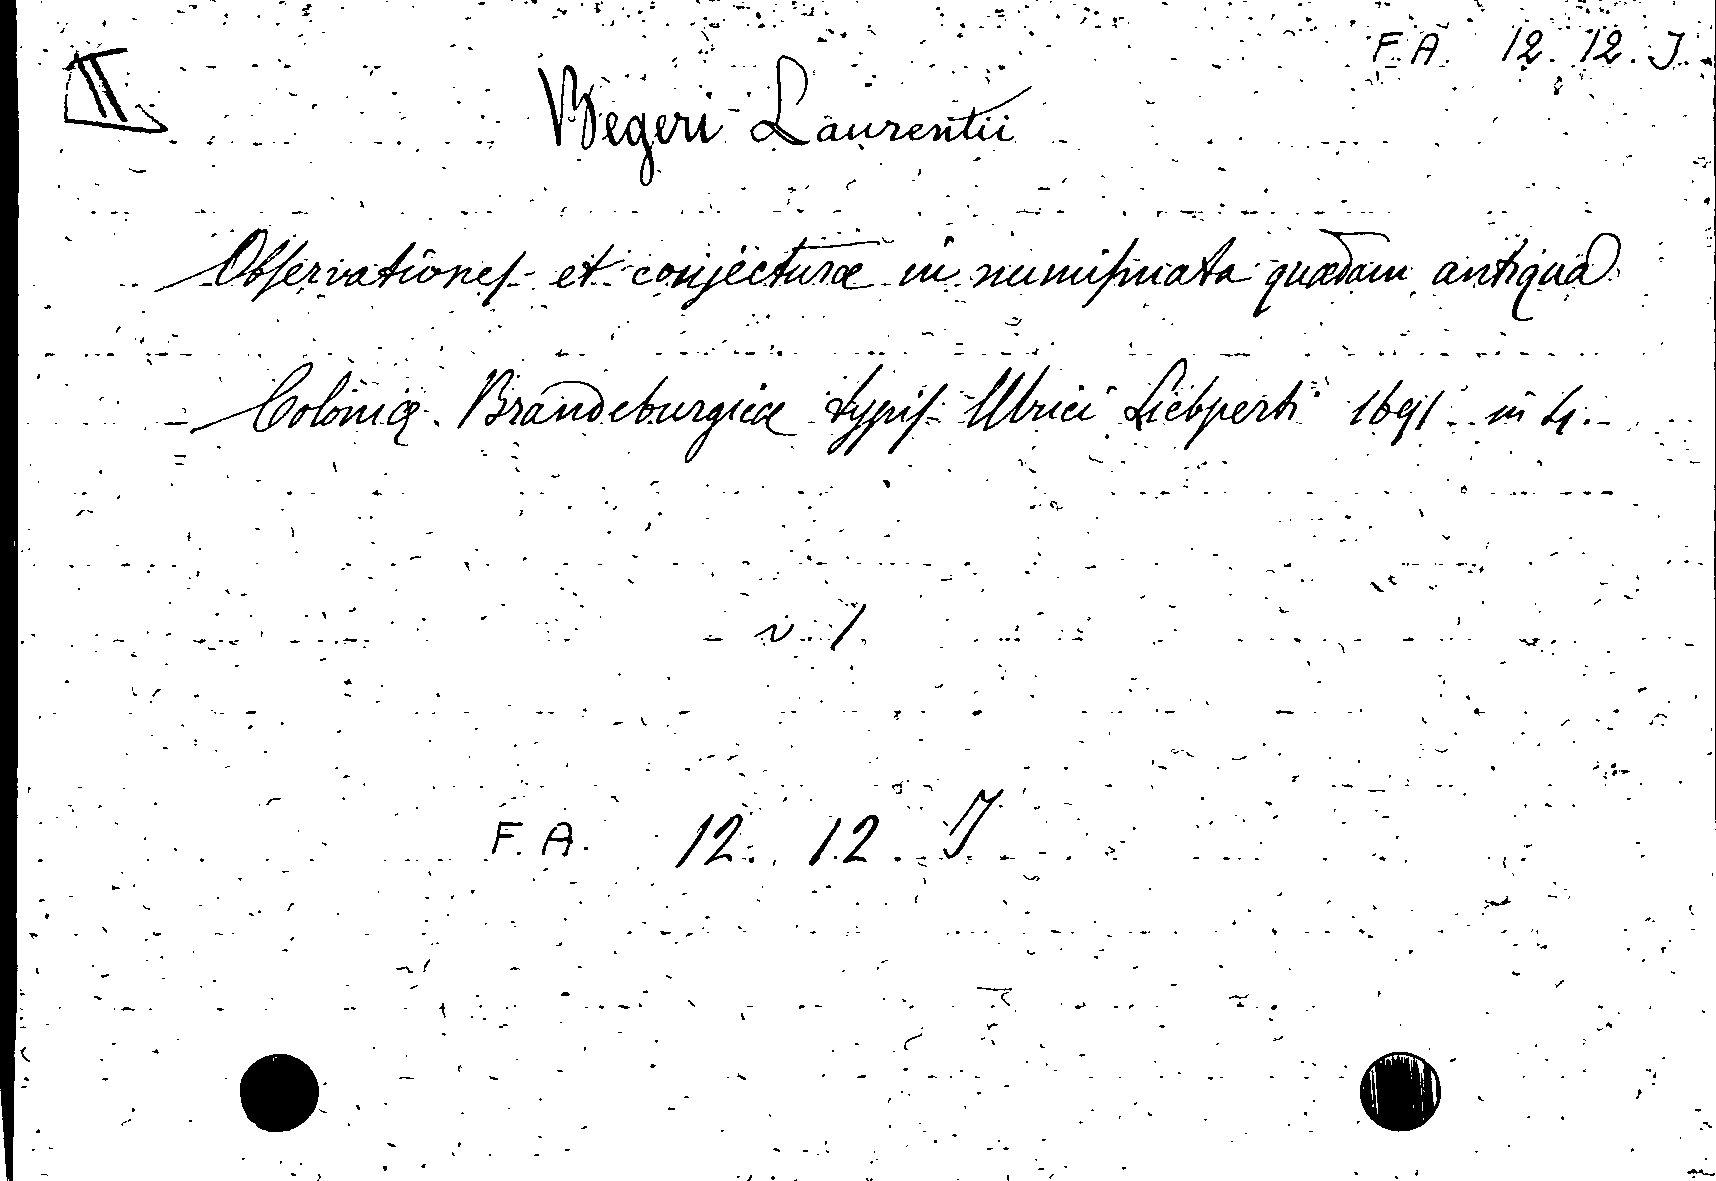 F. A. 12. 12. J.
II
Begeri Laurentii
Observationes et conjecturæ in numismata quædam antiqua
Coloniæ Brandeburgicæ typis Ulrici Liebperti 1691 in 4.
v. 1.
F. A. 12. 12. J